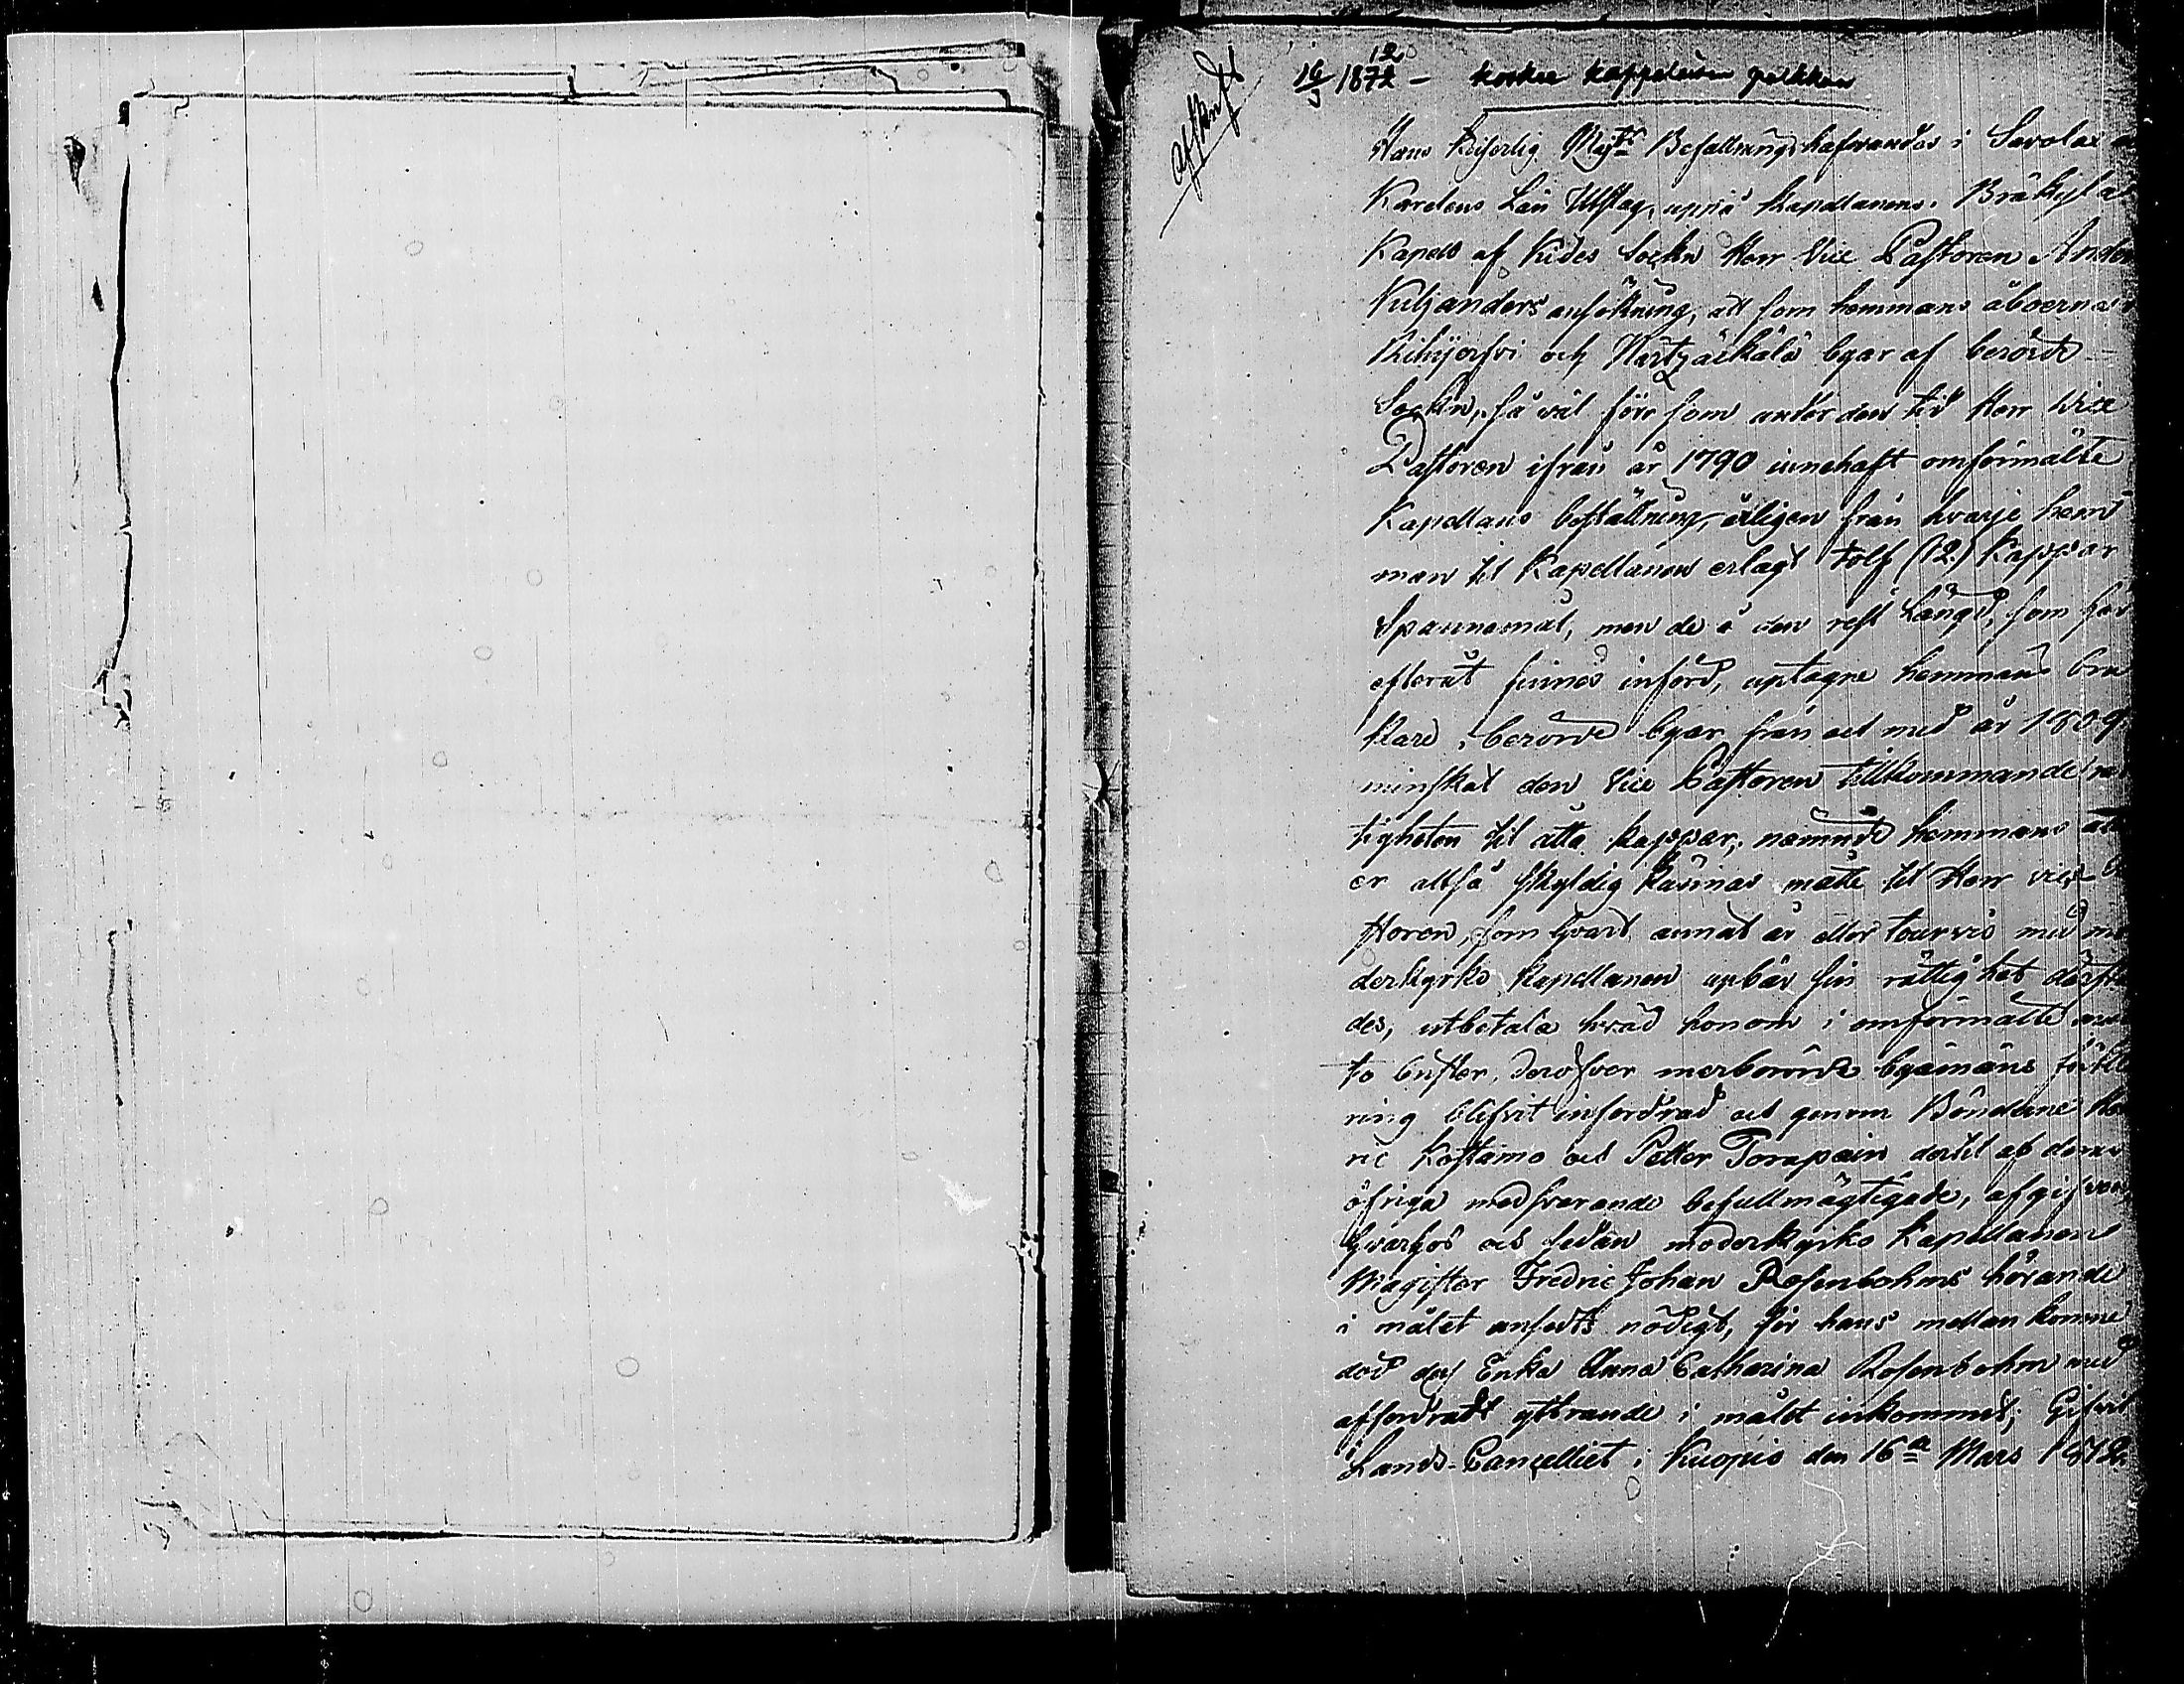 Afskrift
12
16/3 1872 - koskee kappalaisen palkkaa
Hans Kejserlig Majts Befallningshafvandes i Savolax o
Karelens Län Utslag, uppå Kapellanens i Bräkylä
Kapell af Kides Sockn Herr Vice Pastoren Anders
Kuljanders ansökning, att som hemmans åboerna i
Kihijerfvi och Närtzäkälä byar af berörde
Sockn, så väl förr som under den tid Herr Vice
Pastoren ifrån år 1790 innehaft omförmälte
Kapellans beställning, årligen från hvarje hem
man til Kapellanen erlagt tolf (12) Kappar
Spannemål, men de å den rest Längd, som här
efteråt finnes införd, uptagne hemmans bru
kare i berörde byar från och med år 1809
minskat den Vice Pastoren tillkommande rät
tigheten til åtta kappar, nämnde hemmans åbo
er altså skyldig kännas måtte til Herr vice Pa
storen, som hvart annat år eller tourvis med mo
derkyrko Kapellanen upbär sin rättighet därstä
des, utbetala hvad honom i omförmälte mån
to brister, deröfver merberörde byamäns förkla
ring blifvit infordrad och genom Bönderne He
ric Kostamo och Petter Torapain dertil af deras
öfriga medsvarande befullmägtigade, afgifven
hvarhos och sedan moderkyrko Kapellanen
Magister Fredric Johan Rosenbohms hörande
i målet ansedts nödigt, för hans mellankomne
död des Enka Anna Catharina Rosenbohm med
affordradt yttrande i målet inkommit; Gifvit
Lands-Cancelliet i Kuopio den 16a Mars 1812.